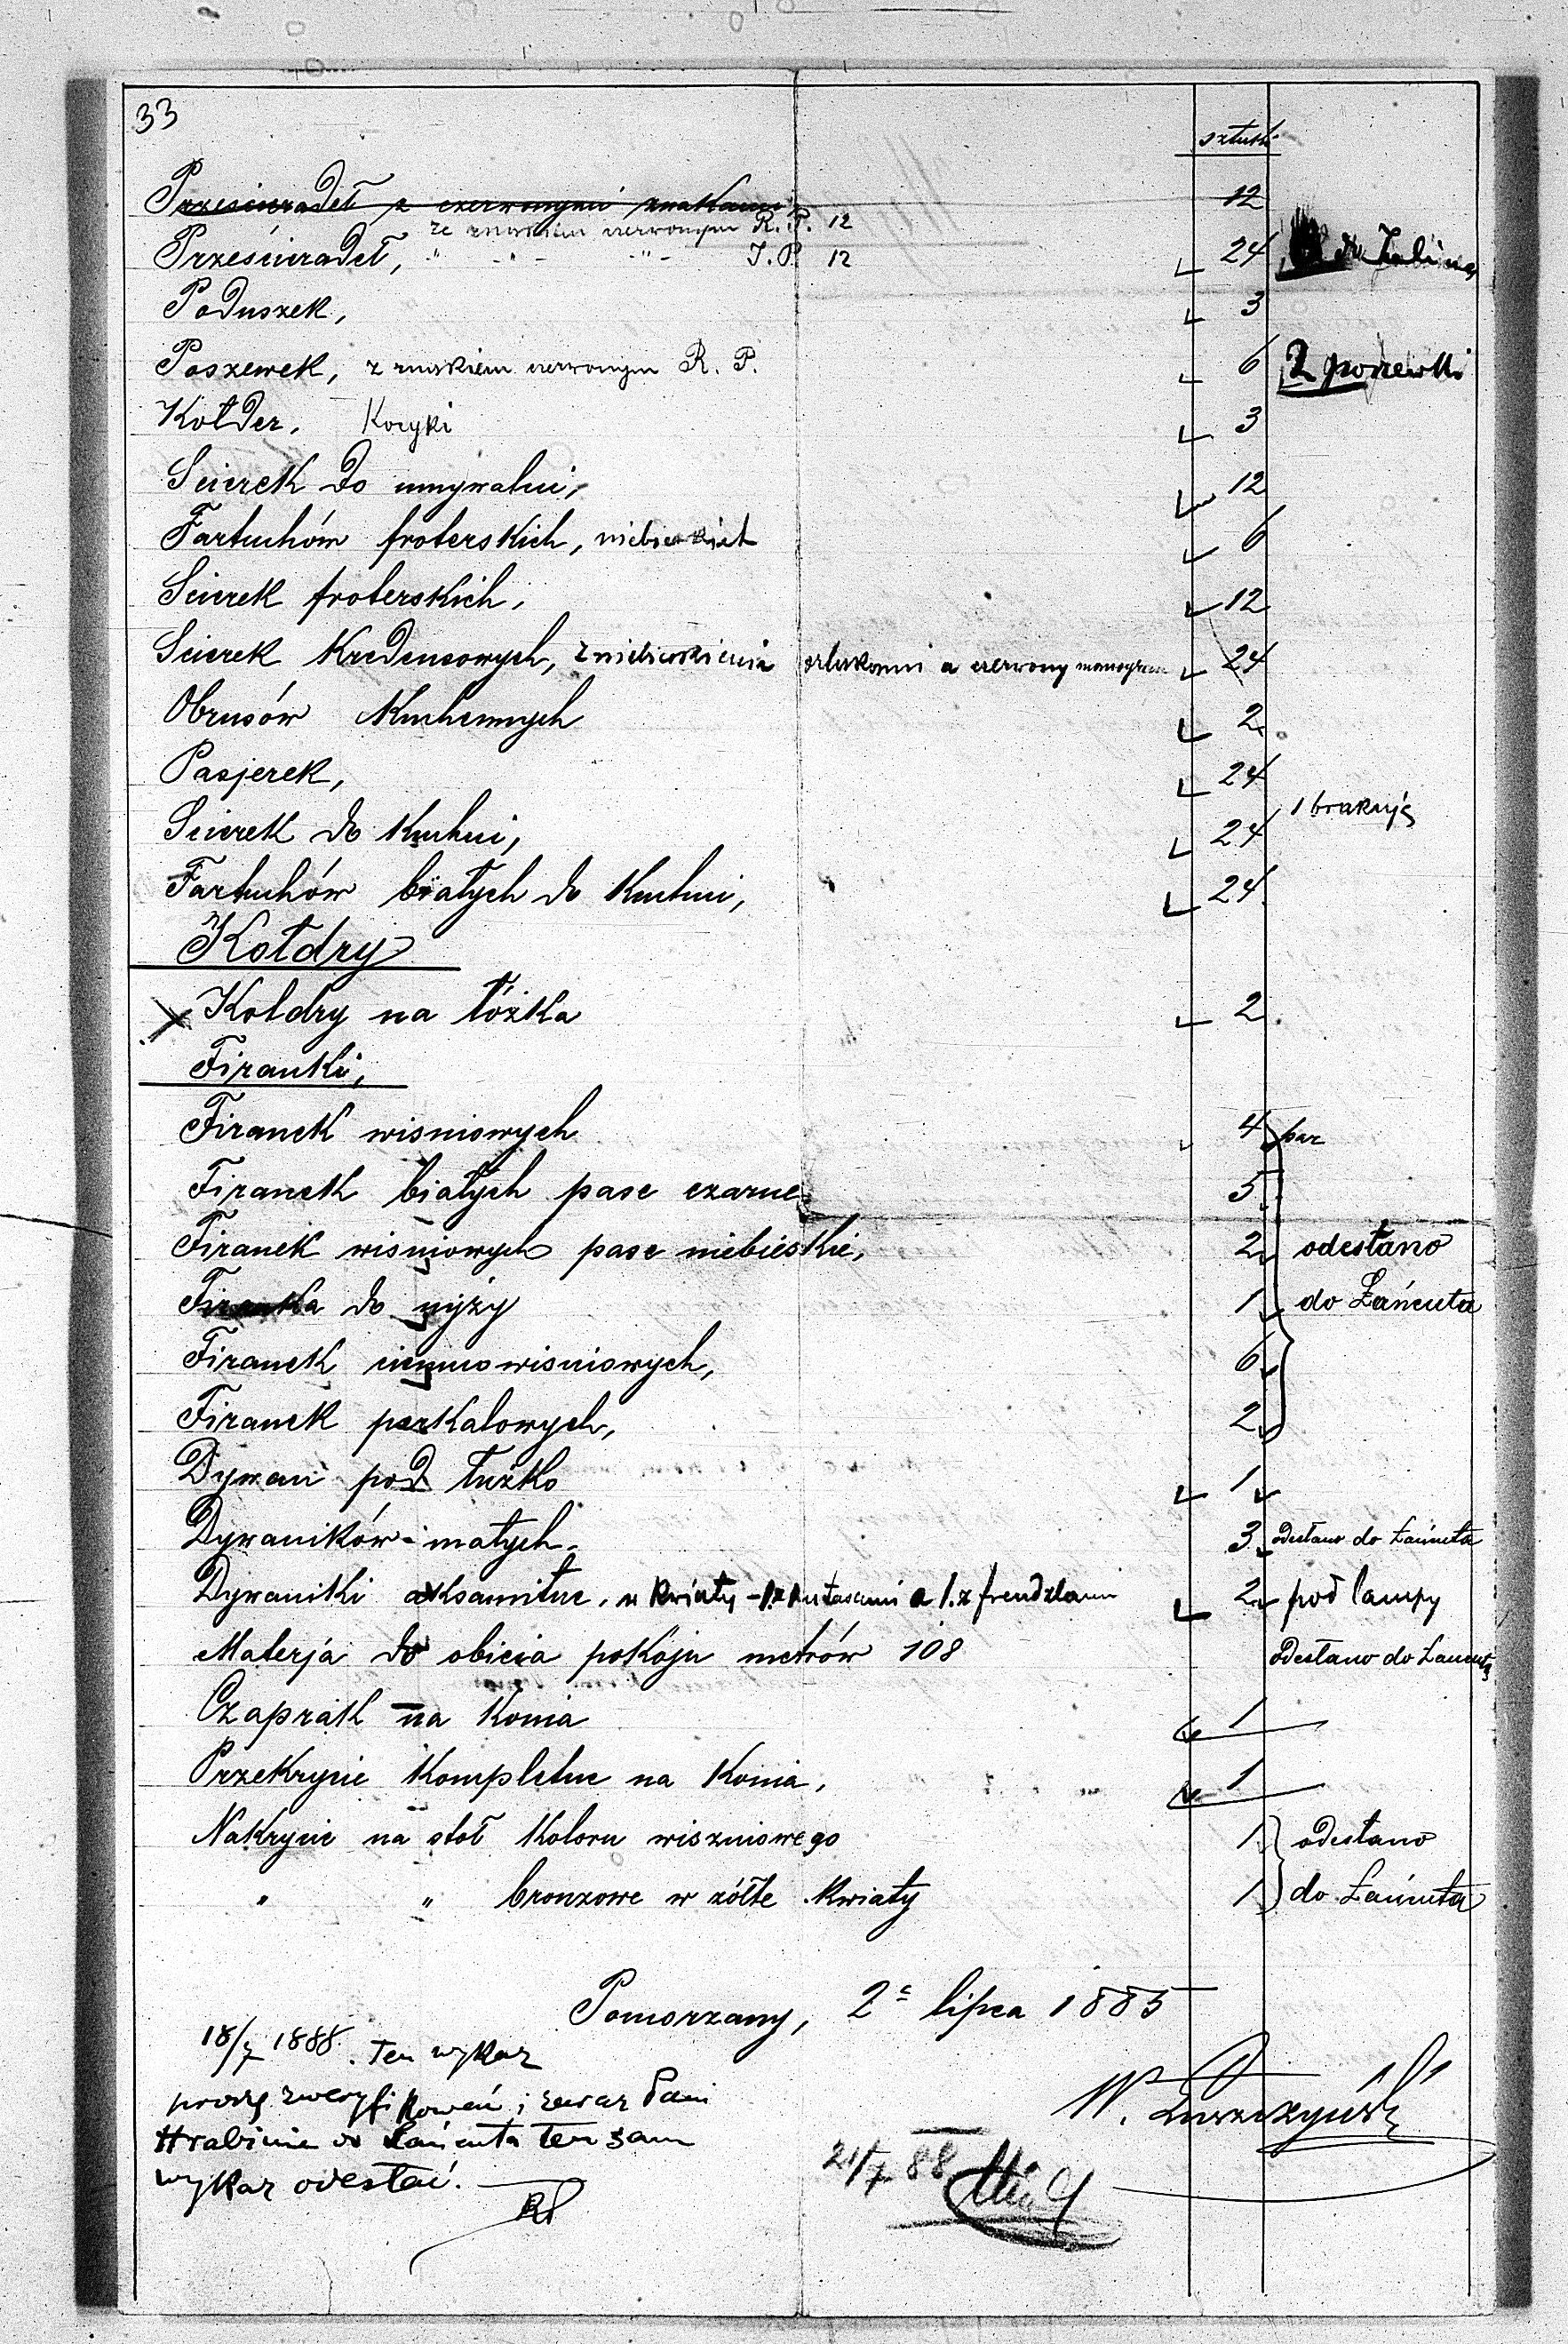 33
sztuki
Prześcieradeł z czerwonymi znakami 12
ze znakiem czerwonym R. P. 12
Prześcieradeł, " - " - - " - J. P. 12 24
Poduszek, 3
Poszewek, z znakiem czerwonym R. P. 6 2 poszewki
Kołder, Kocyki 3
Scierek do umywalni, 12
Fartuchów froterskich, niebieskich 6
Scierek froterskich, 12
Scierek Kredensowych, z niebieskiemi szlakami a czerwony monogram 24
Obrusów Kuchennych 2
Pasjerek, 24
1 brakuje
Scierek do Kuchni, 24
Fartuchów białych do Kuchni, 24
Kołdry
Koldry na łóżka 2
Firanki,
Firanek wisniowych 4 par
Firanek białych pase czarne 5
Firanek wisniowych pase niebieskie, 2 odesłano
Firanka do nyży 1 do Łańcuta
Firanek ciemno wisniowych, 6
Firanek perkalowych, 2
Dywan pod łużko 1
Dywaników małych 3 odesłano do Łańcuta
Dywaniki aksamitne, w kwiaty - 1. z kutasami a 1. z frendzlami 2 pod lampy
Materja do obicia pokoju metrów 108 odesłano do Łańcuta
Czaprak na Konia 1
Przekrycie Kompletne na Konia, 1
Nakrycie na stoł Koloru wiszniowego 1 odesłano
" " bronzowe w zółte Kwiaty 1 do Łańcuta
Pomorzany, 2 lipca 1885
18/7 1888. Ten wykaz
proszę zweryfikować i zaraz Pani
Hrabinie do Łańcuta ten sam
wykaz odesłać.
RP
W.
21/7 88